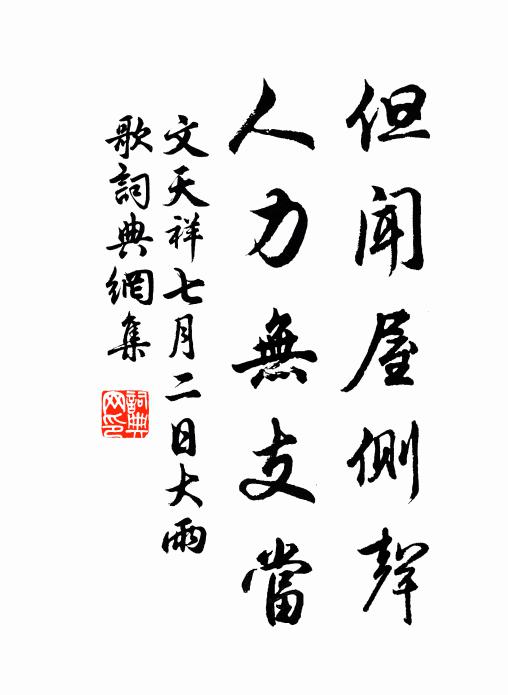 但闻屋側聲
人力無支當
文天祥七月二日大雨
歌詞典網集
詞典網印